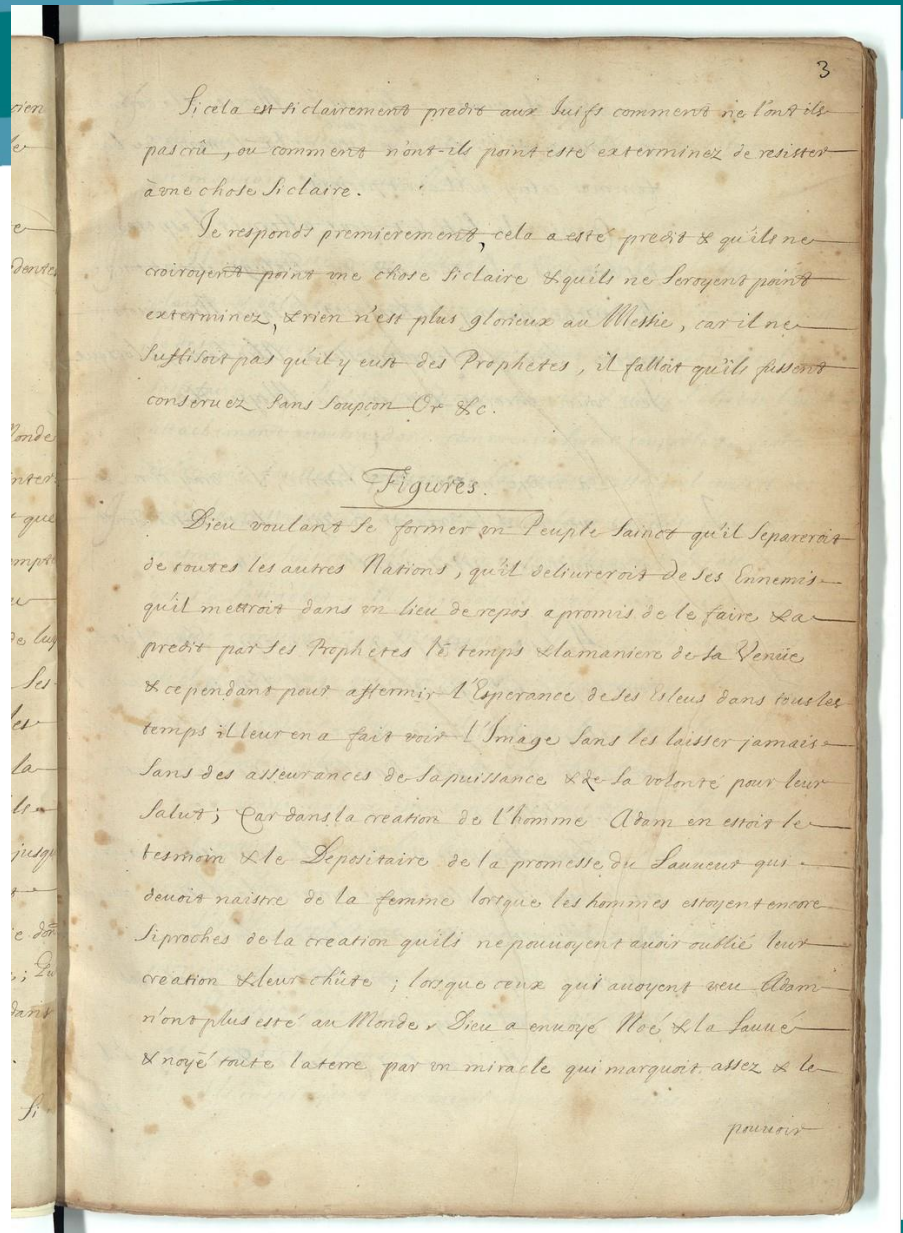 3
Si cela est si clairement predit aux Juifs comment ne l'ont ils
pas crû, ou comment n'ont-ils point esté exterminez de resister
à vne chose si claire.
Je responds premierement, cela a esté predit & qu'ils ne
croiroyent point vne chose si claire & qu'ils ne seroyent point
exterminez, & rien n'est plus glorieux au Messie, car il ne
suffisoit pas qu'il y eust des Prophetes, il falloit qu'ils fussent
conseruez sans soupçon Or &c.
Figures.
Dieu voulant se former vn Peuple Sainct qu'il separeroit
de toutes les autres Nations, qu'il deliureroit de ses Ennemis
qu'il mettroit dans vn lieu de repos a promis de le faire & a
predit par ses Prophetes le temps & la maniere de sa Venüe
& cependant pour affermir l'Esperance de ses Esleus dans tous les
temps il leur en a fait voir l'Image sans les laisser jamais
sans des asseurances de sa puissance & de sa volonté pour leur
salut; Car dans la creation de l'homme Adam en estoit le
tesmoin & le Depositaire de la promesse du Sauueur qui
deuoit naistre de la femme lorsque les hommes estoyent encore
si proches de la creation qu'ils ne pouuoyent auoir oublié leur
creation & leur chûte ; lorsque ceux qui auoyent veu Adam
n'ont plus esté au Monde, Dieu a enuoyé Noé & la sauué
& noyé toute la terre par vn miracle qui marquoit assez & le
pouuoir